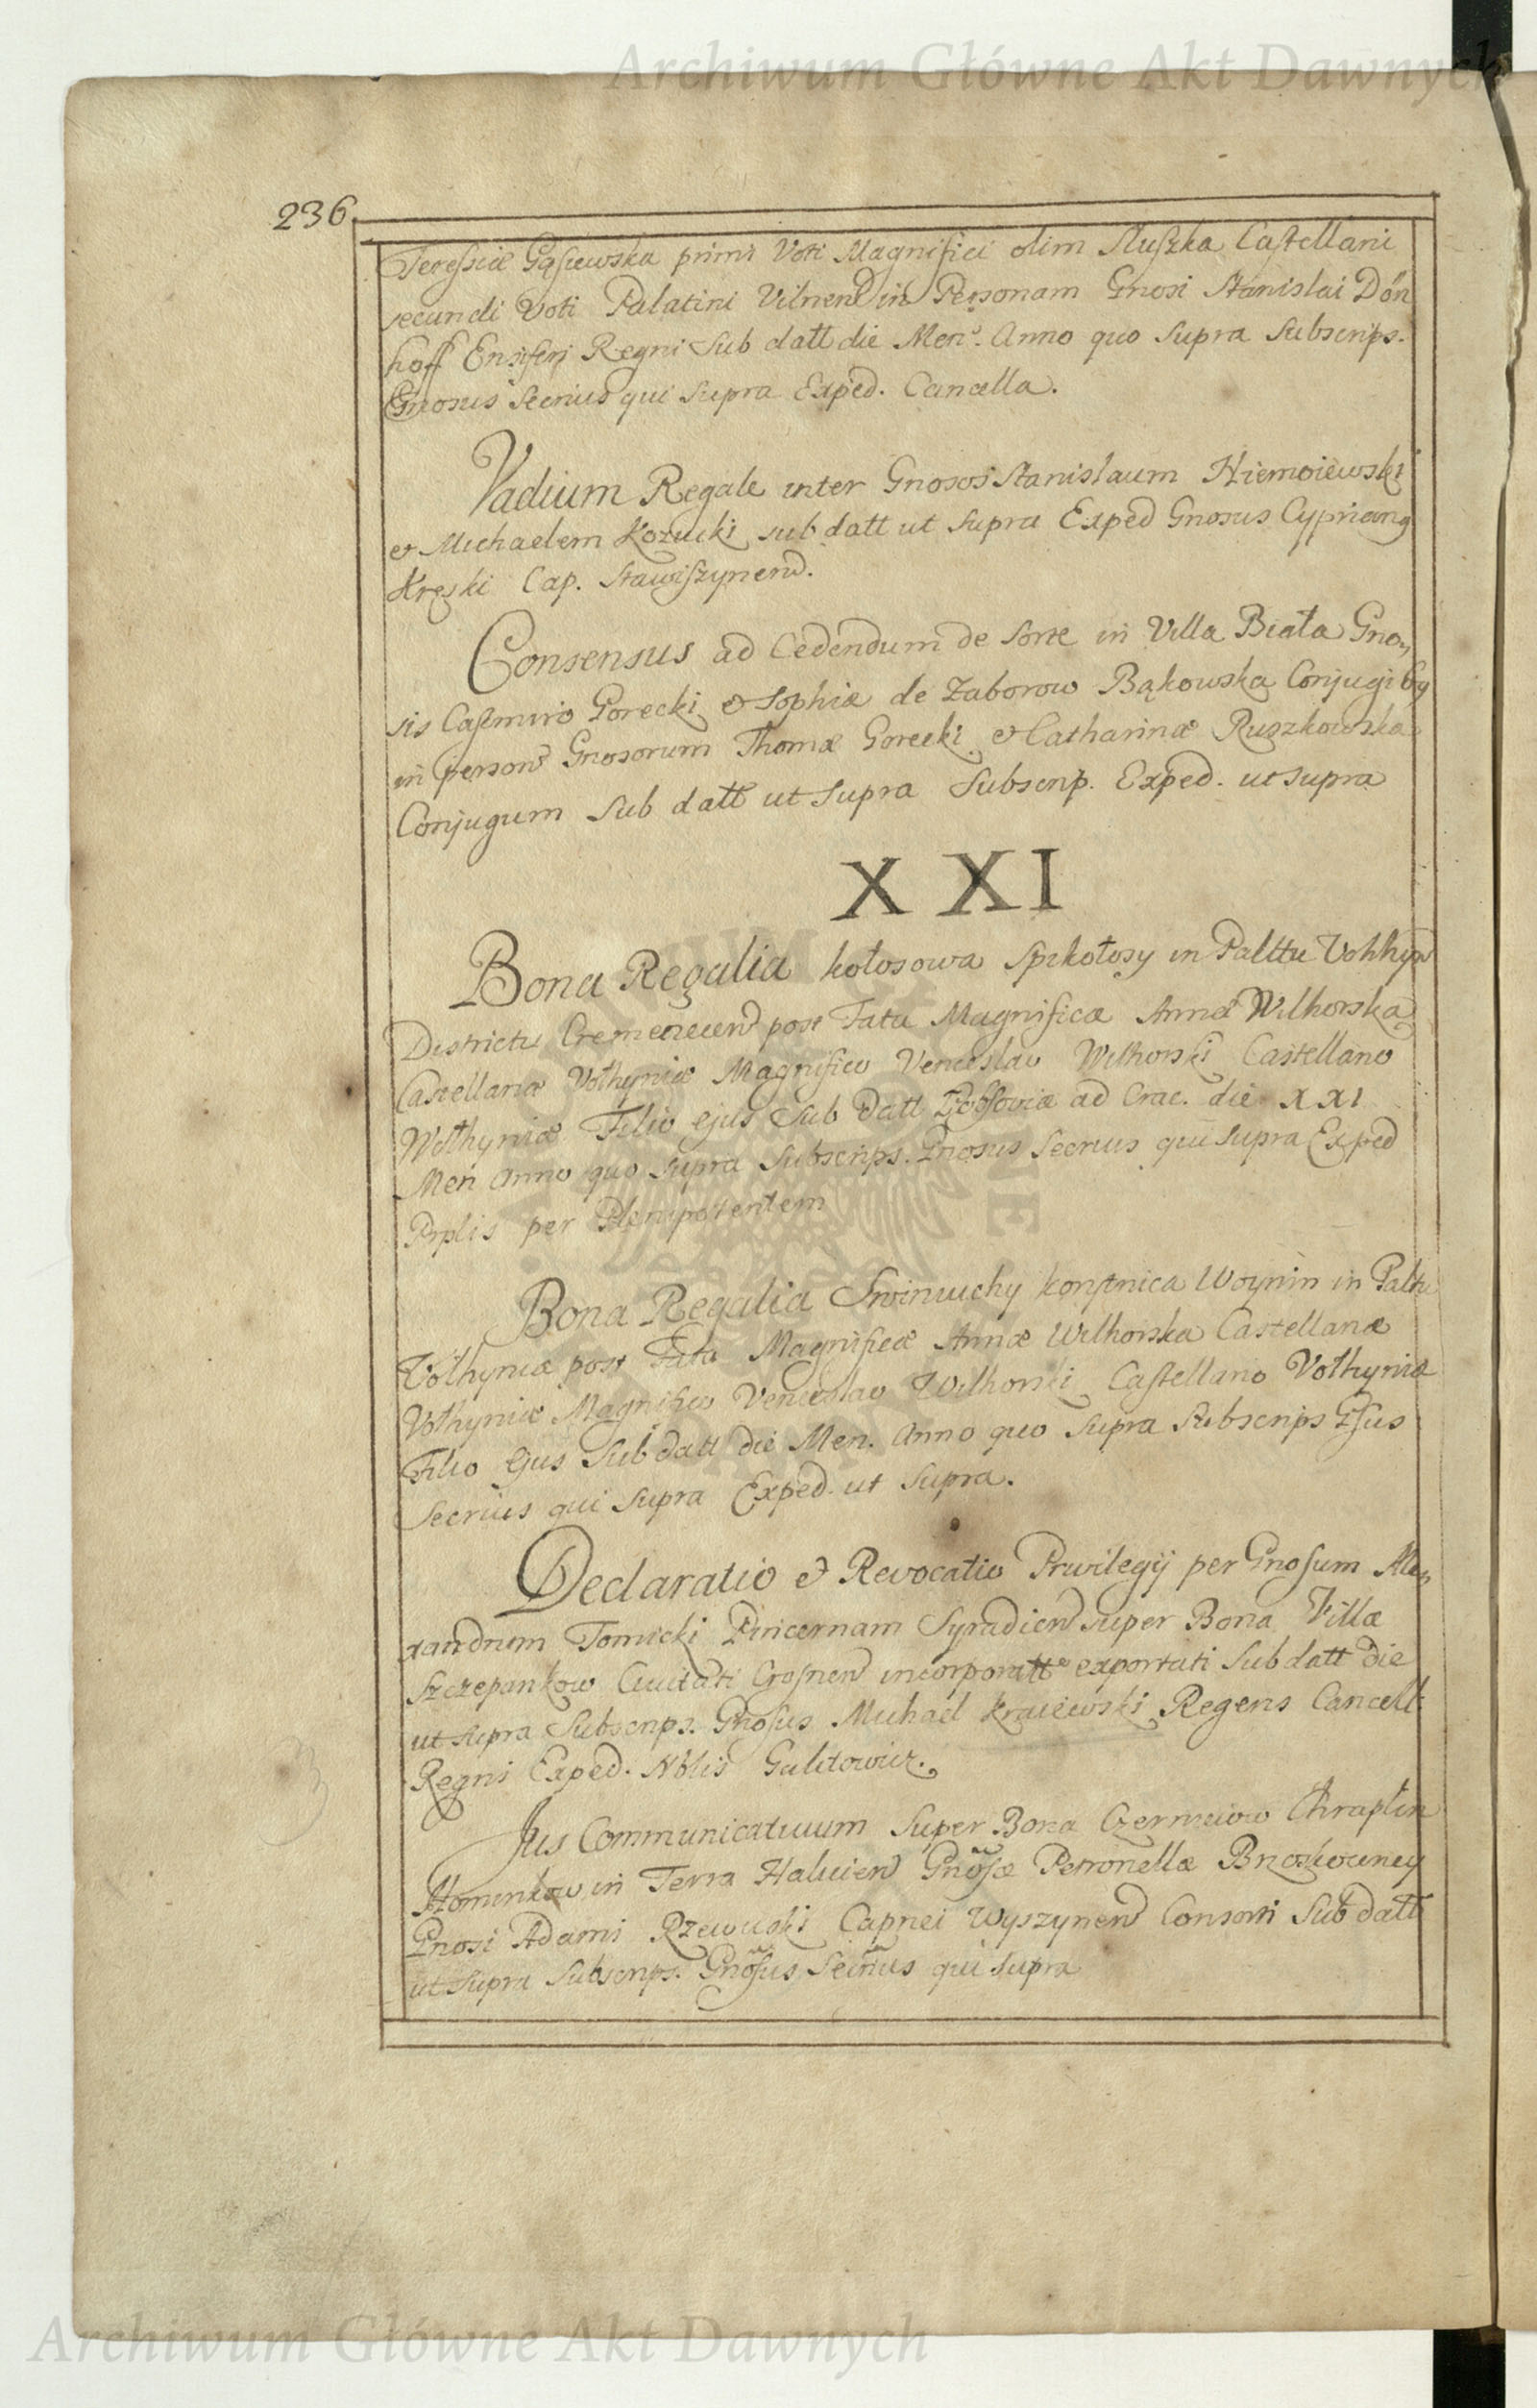 Archiwum Główne Akt Dawnych
236.
Teressiæ Gąsiewska primi Voti Magnifici olim Słuszka Castellani
secundi Voti Palatini Vilnen in Personam Gnosi Stanislai Dón
hoff Ensiferi Regni Sub datt die Men. Anno quo Supra Subscrips.
Gnosus Secrius qui Supra Exped. Cancella.
Vadium Regale inter Gnosos Stanislaum Niemoiewski
et Michaelem Kozucki sub datt ut Supra Exped Gnosus Cyprianq
Kręski Cap. Stawiszynen.
Consensus ad Cedendum de Sorte in Villa Biała Gno,,
sis Casimiro Gorecki et Sophiæ de Zaborow Bąkowska Conjugibq
in person Gnosorum Thomæ Gorecki et Catharinæ Ruszkowska
Conjugum Sub datt ut Supra Subscrip. Exped. ut supra
XXI
Bona Regalia kołosowa Spikołosy in Palttu Vołhyn
Districtu Cremenecen post Fata Magnificæ Annæ Wilhorska
Castellanæ Vołhyniæ Magnifico Venceslao Wilhorski Castellano
Wołhyniæ Filio ejus Sub Datt ad Crac. die XXI
Men Anno quo supra Subscrips. Gnosus Secrius qui supra Exped
Prplis per Plenipotentem
Bona Regalia Swiniuchy Woynin in Paltu
Vołhyniæ post Fata Magnificæ Annæ Wilhorska Castellanæ
Vołhyniæ Magnifico Venceslao Wilhorski Castellano Vołhyniæ
Filio Ejus Sub datt die Men. Anno quo Supra Subscrips Gsus
Secrius qui Supra Exped. ut Supra.
Declaratio et Revocatio Privilegij per Gnosum Ale,,
xandrum Tomicki Pincernam Syradien super Bona Villæ
Szczepankow Civitati Crosnen incorporatt exportati Sub datt die
ut supra Subscrips. Gnosus Michael Kraiewski Regens Cancell.
Regni Exped. Nblis Gulitowicz.
Jus Communicativum Super Bona Czerniiow Chraplin
in Terra Halicien Gnosæ Petronellæ
Gnosi Adami Rzewuski Capnei Wyszynen Consorti Sub datt
ut Supra Subscrips. Gnosus Secrius qui Supra
Archiwum Główne Akt Dawnych